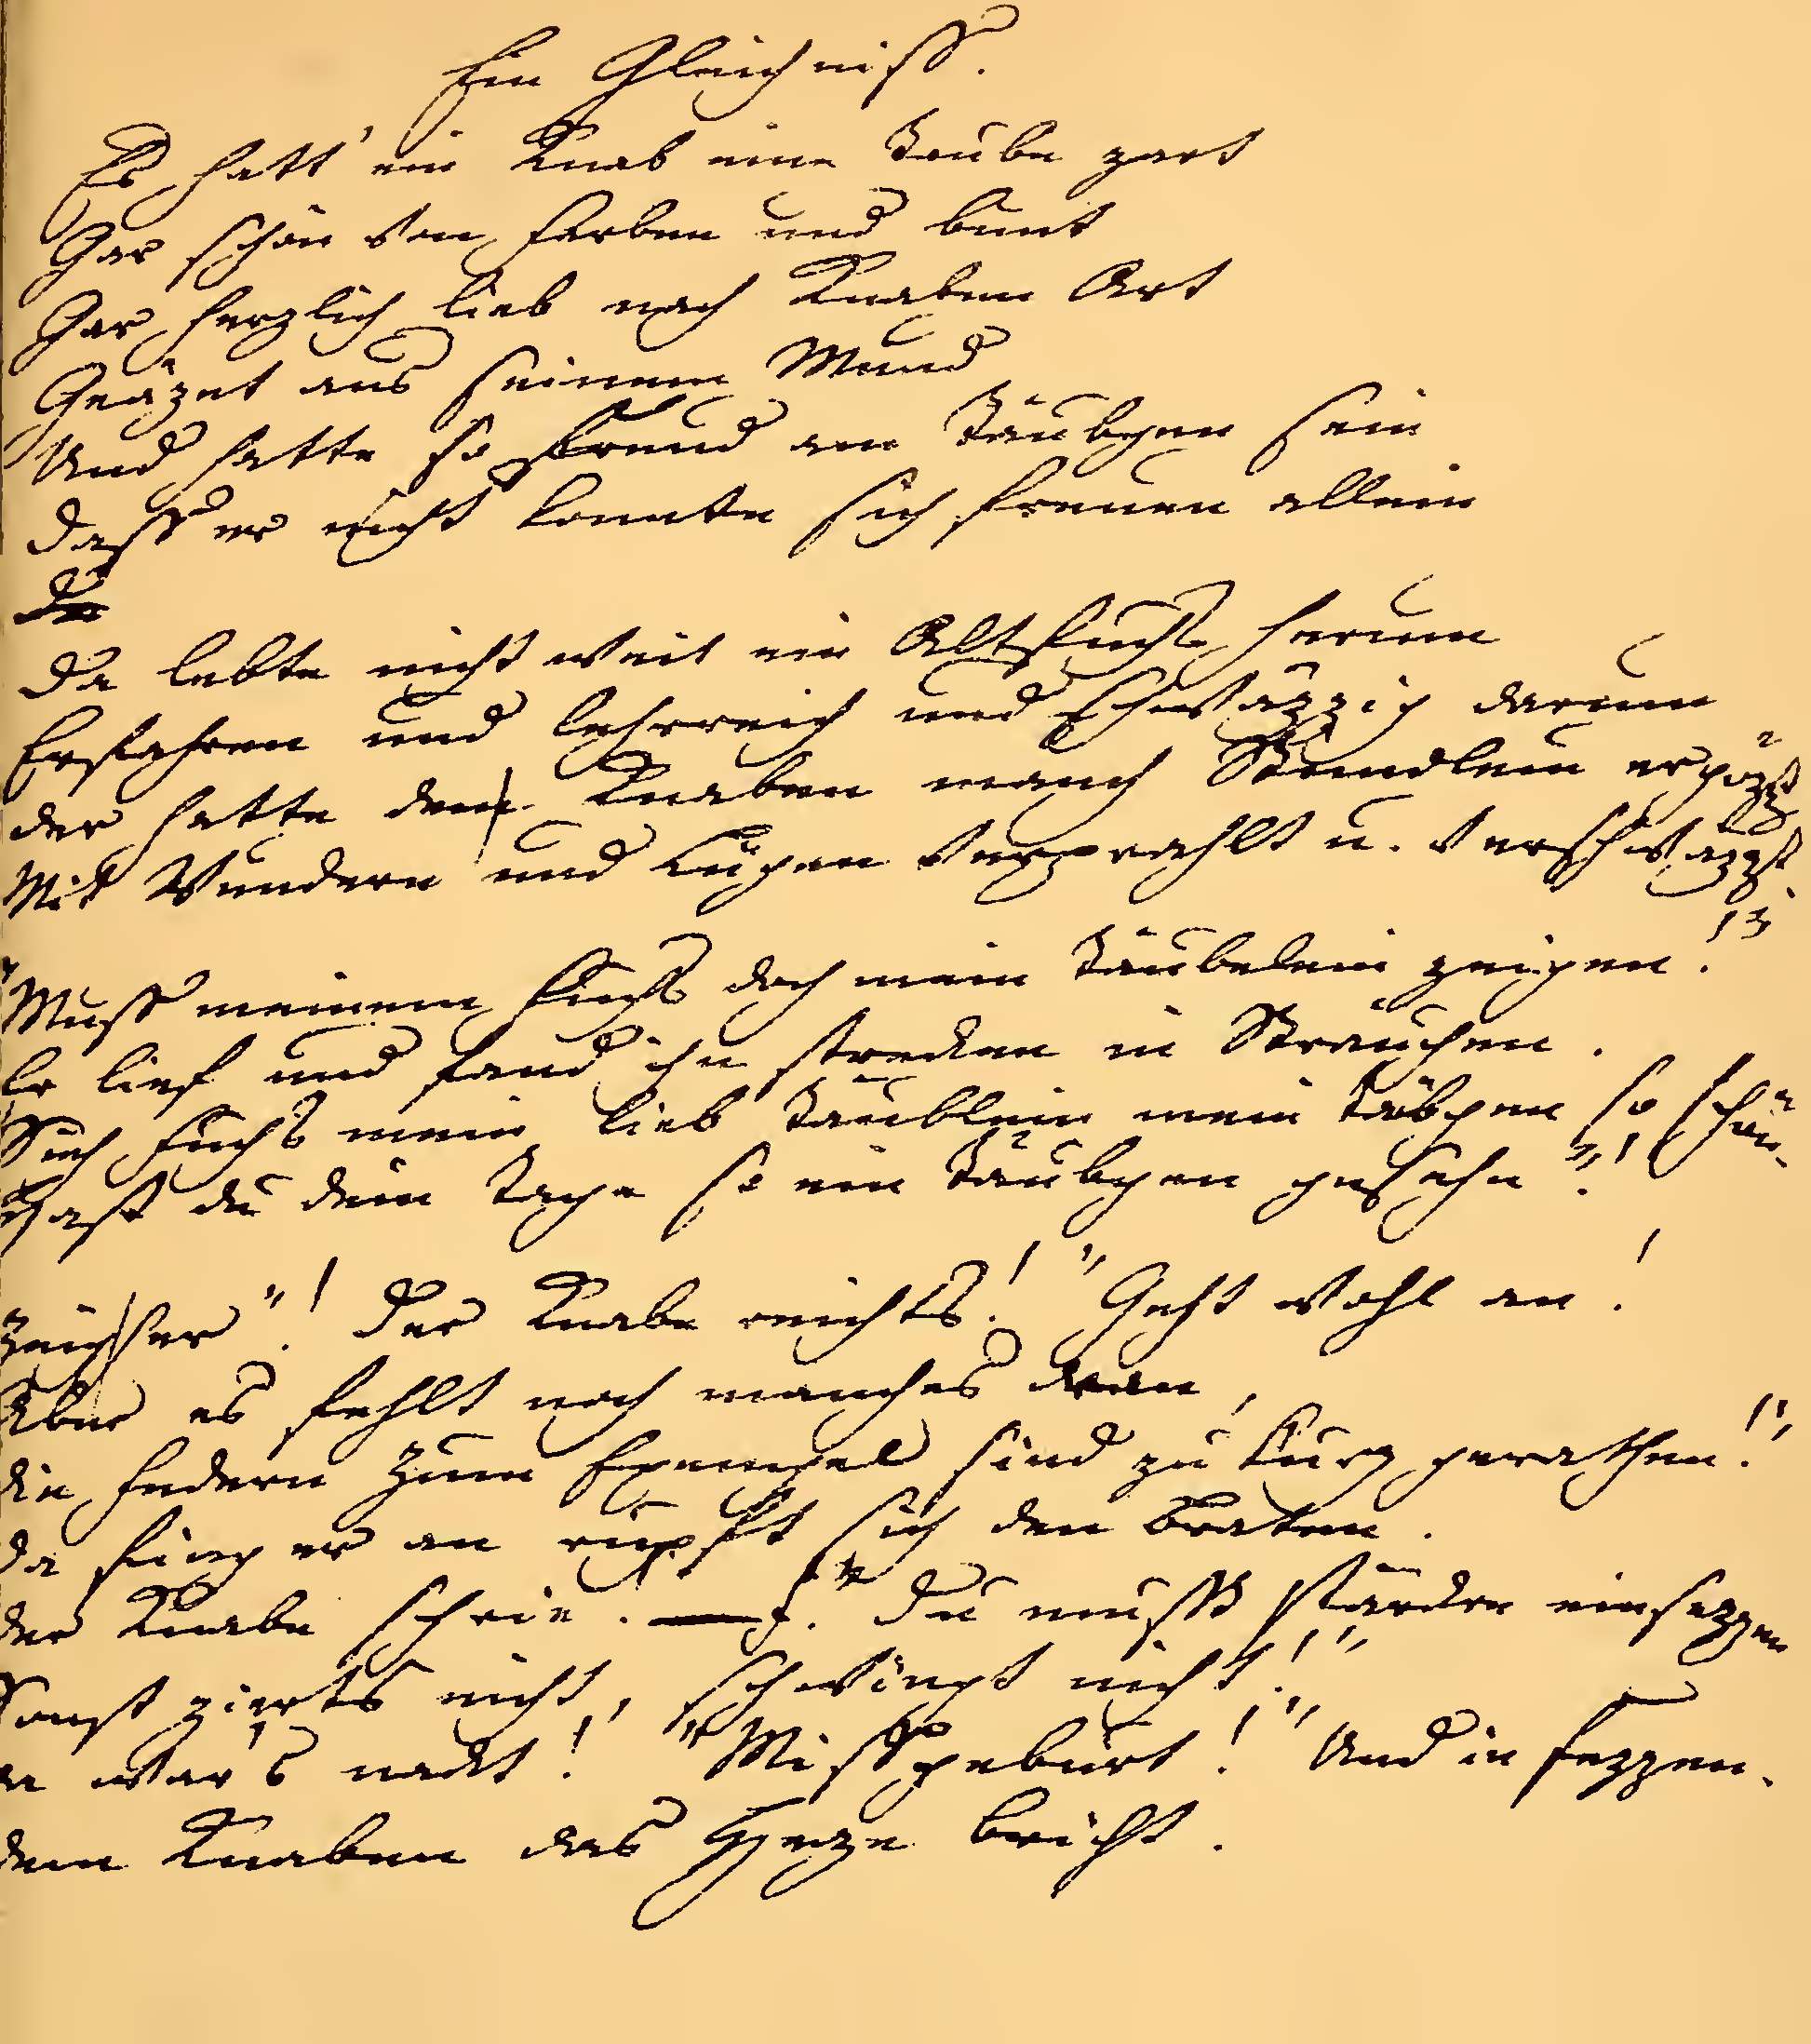 Ein Gleichniss.
Es hatt' ein Knab eine Taube zart
Gar schön von Farben und bunt
Gar herzlich lieb nach Knaben Art
Geäzet aus seinem Mund
Und hatte so Freud am Täubgen sein
Dass er nicht konnte sich freuen allein
Da
Da lebte nicht weit ein Altfuchs herum
Erfahren und lehrreich und schwäzzig darum
Der hatte dem Knaben manch Stündlein ergözt
Mit Wundern und Lügen verprahlt u. verschwäzzt.
"Muss meinem Fuchs doch mein Täubelein zeigen!"
Er lief und fand ihn strecken in Sträuchen.
Sieh Fuchs mein lieb Täublein mein Täubgen so schön.
Hast du dein Tage so ein Täubgen gesehn?"!
Zeig her"! Der Knabe reichts! "Geht wohl an!
Aber es fehlt noch manches dran,
Die Federn zum Exempel sind zu kurz gerathen!"
Da fing er an rupft sich den Braten.
Der Knabe schrie. — "Du musst stärcke einsezzen
Sonst zierts nicht, schwingt nicht!"
Da war's nackt! "Missgeburt!" Und in Fezzen.
Dem Knaben das Herze bricht.